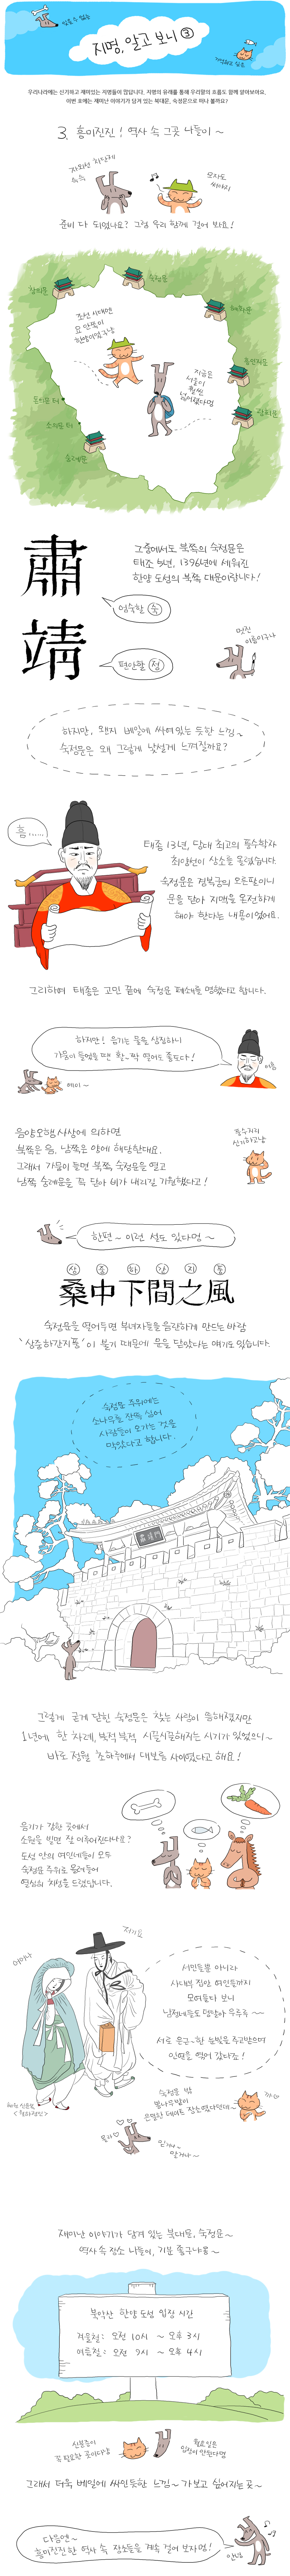 믿을 수 없는
지명, 알고 보니 ③
우리나라에는 신기하고 재미있는 지명들이 많답니다. 지명의 유래를 통해 우리말의 흐름도 함께 알아보아요.
이번 호에는 재미난 이야기가 담겨 있는 북대문, 숙정문으로 떠나 볼까요?
3. 흥미진진! 역사 속 그곳 나들이 ~
자외선 차단제
슥슥
모자도
써야지
준비 다 되었나요? 그럼 우리 함께 걸어 봐요!
창의문
숙정문
혜화문
조선 시대엔
요 안쪽이
한양이었구냥
흥인지문
지금은
서울이
훨씬
넓어졌다멍
돈의문 터
소의문 터
광희문
숭례문
肅
靖
그중에서도 북쪽의 숙정문은
태조 5년, 1396년에 세워진
한양 도성의 북쪽 대문이랍니다!
엄숙할 숙
편안할 정
멋진
이름이구나
하지만, 왠지 베일에 싸여 있는 듯한 느낌~
숙정문은 왜 그렇게 낯설게 느껴질까요?
흠......
태종 13년, 당대 최고의 풍수학자
최양선이 상소를 올렸습니다.
숙정문은 경복궁의 오른팔이니
문을 닫아 지맥을 온전하게
해야 한다는 내용이었어요.
그리하여 태종은 고민 끝에 숙정문 폐쇄를 명했다고 합니다.
하지만! 음기는 물을 상징하니
가뭄이 들었을 땐 활~짝 열어도 좋도다!
에이~
음양오행 사상에 의하면
북쪽은 음, 남쪽은 양에 해당한대요.
그래서 가뭄이 들면 북쪽, 숙정문을 열고
남쪽 숭례문을 꼭 닫아 비가 내리길 기원했다고!
풍수지리
신기하구냥
한편~ 이런 설도 있다멍~
상 중 하 간 지 풍
桑中下間之風
숙정문을 열어두면 부녀자들을 음란하게 만드는 바람
'상중하간지풍'이 불기 때문에 문을 닫았다는 얘기도 있습니다.
숙정문 주위에는
소나무를 잔뜩 심어
사람들이 오가는 것을
막았다고 합니다.
그렇게 굳게 닫힌 숙정문은 찾는 사람이 뜸해졌지만
1년에 한 차례, 북적북적 시끌시끌해지는 시기가 있었으니~
바로 정월 초하루에서 대보름 사이였다고 해요!
음기가 강한 곳에서
소원을 빌면 잘 이루어진다나요?
도성 안의 여인네들이 모두
숙정문 주위로 몰려들어
열심히 치성을 드렸답니다.
어머나
저기요
서민들뿐 아니라
사대부 집안 여인들까지
모여들다 보니
남정네들도 덩달아 우르르 ~~
서로 은근~한 눈빛을 주고받으며
인연을 맺어 갔다죠!
숙정문 밖
뽕나무밭이
은밀한 데이트 장소였다던데~
재미난 이야기가 담겨 있는 북대문, 숙정문~
역사 속 장소 나들이, 기분 좋구냐옹~
북악산 한양 도성 입장 시간
겨울철: 오전 10시 ~ 오후 3시
여름철: 오전 9시 ~ 오후 4시
신분증이
꼭 필요한 곳이다냥
월요일은
입장이 안된다멍
그래서 더욱 베일에 싸인듯한 느낌~ 가보고 싶어지는 곳~
다음엔~
흥미진진한 역사 속 장소들을 계속 걸어 보자멍!
안녕